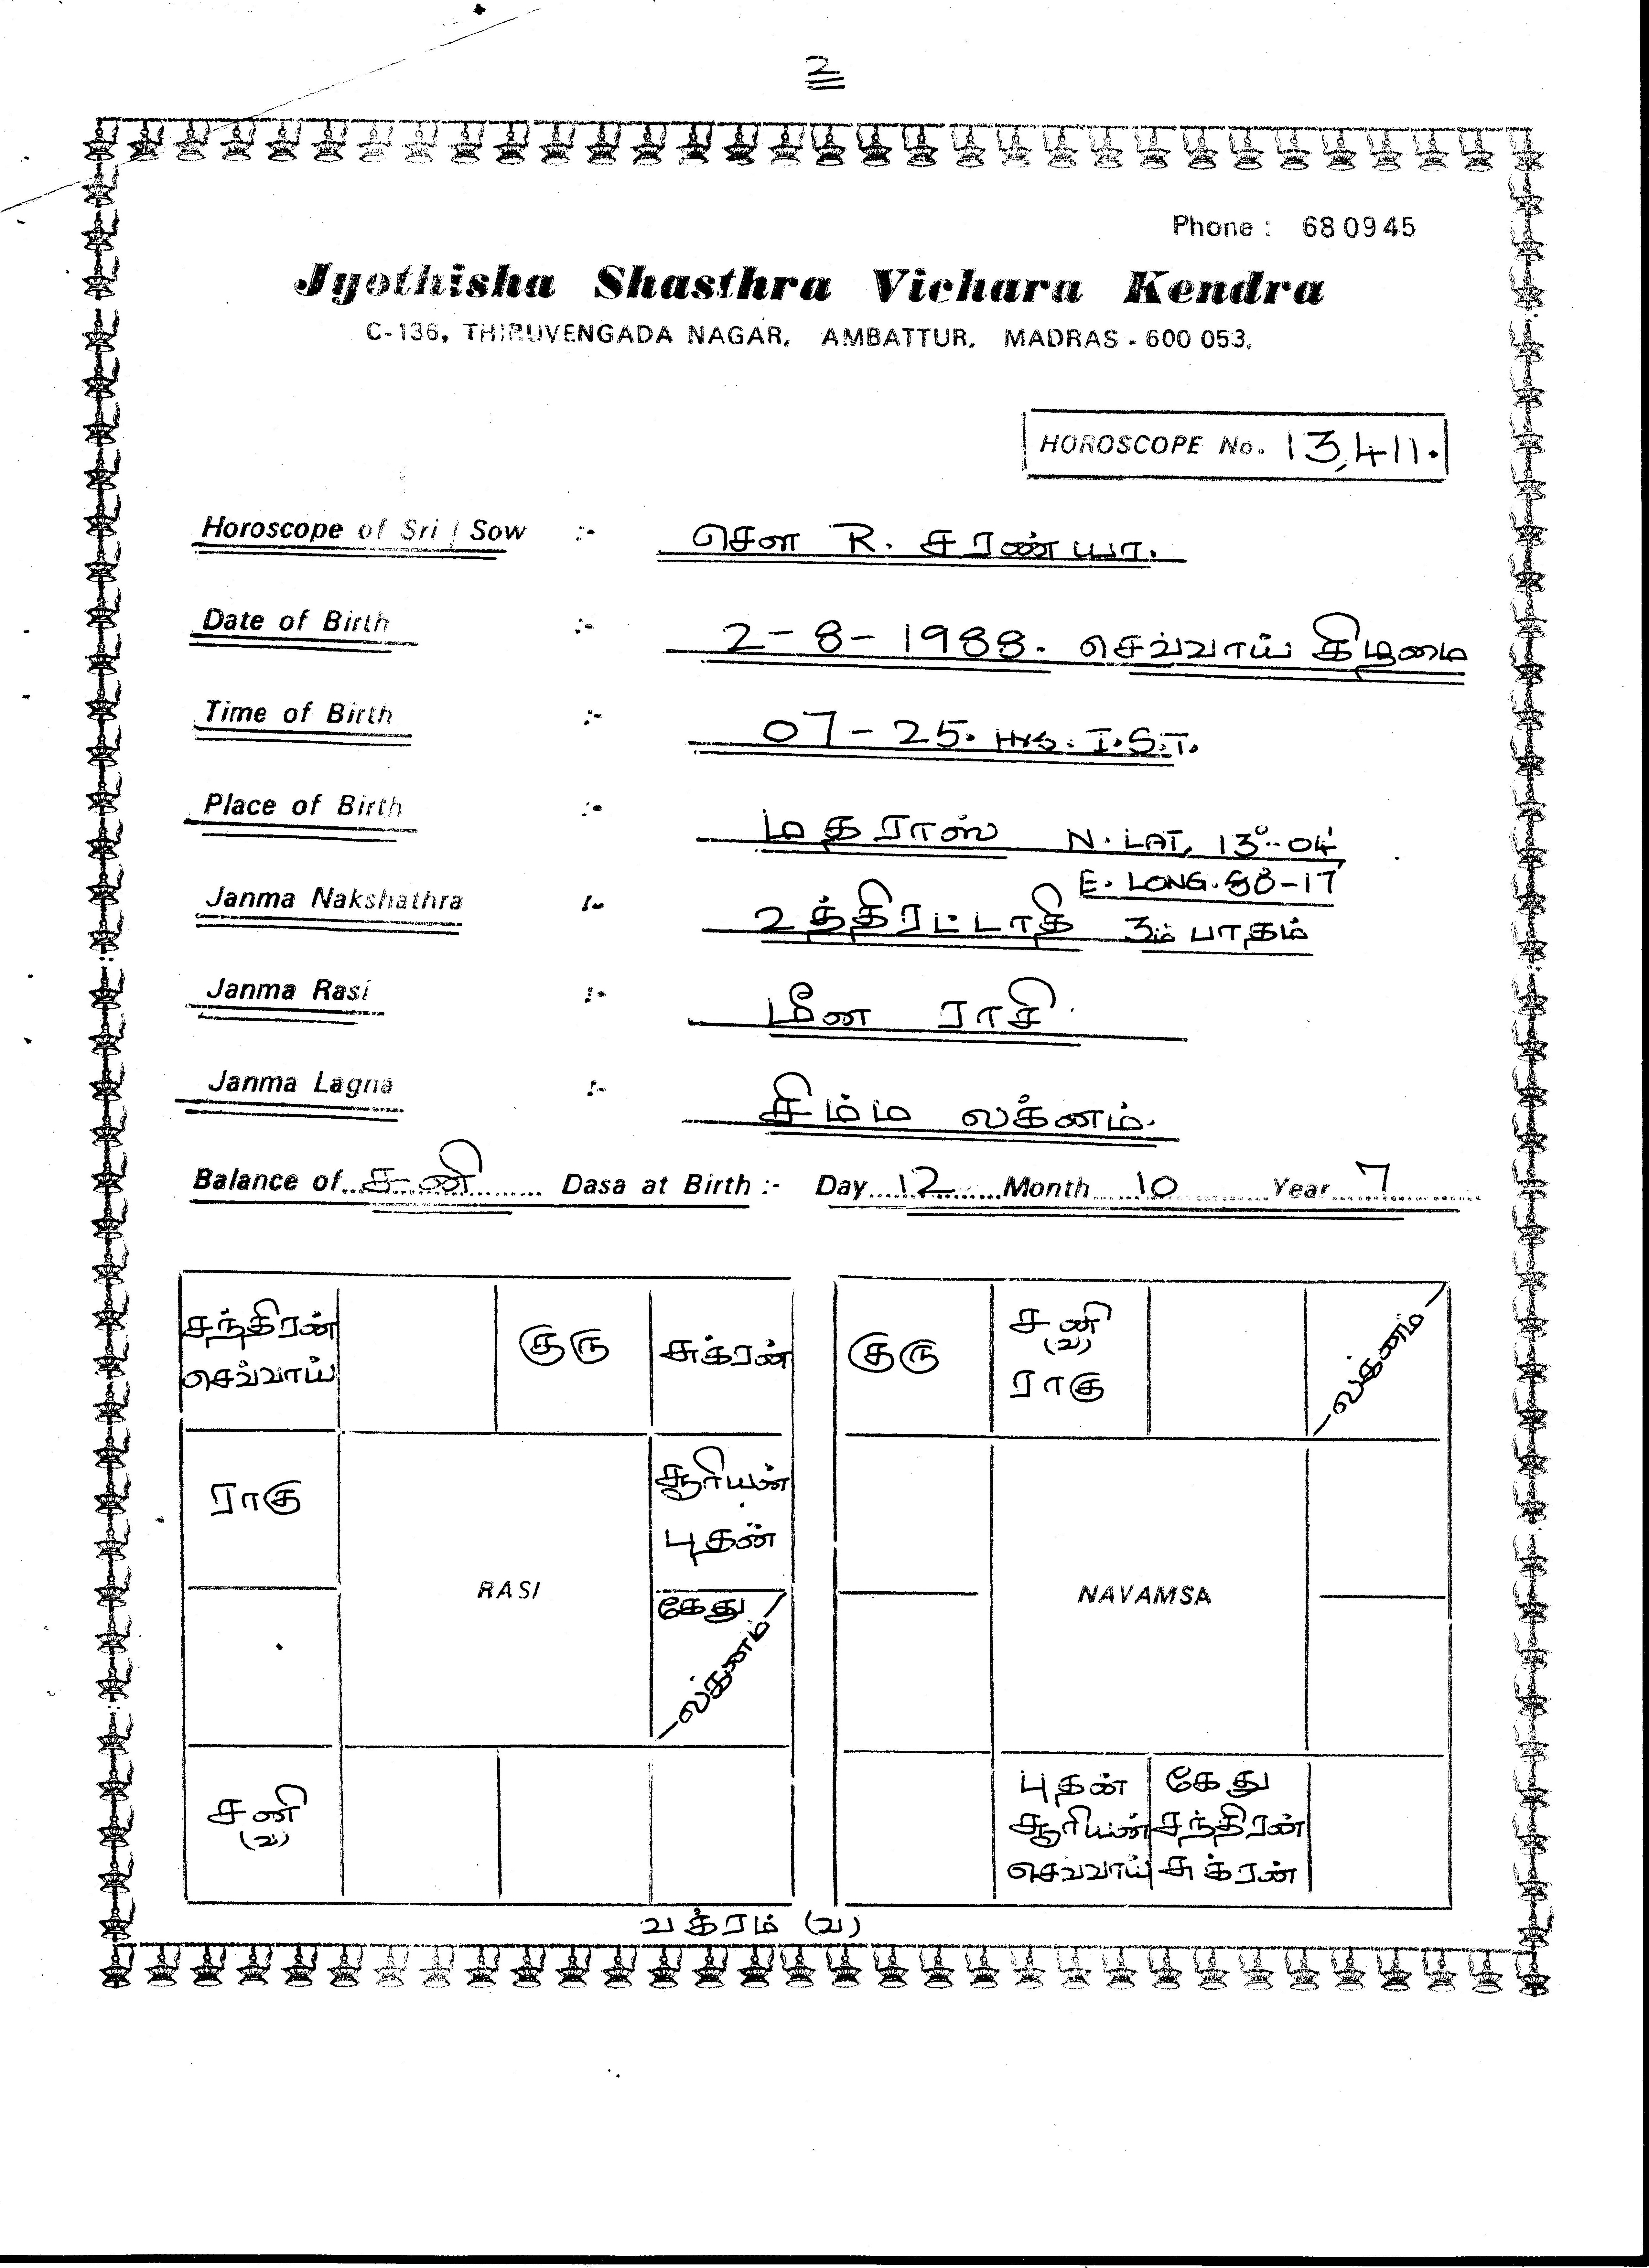 2
Phone : 680945
Jyothisha Shasthra Vichara Kendra
C-136, THIRUVENGADA NAGAR, AMBATTUR, MADRAS - 600 053.
HOROSCOPE No. 13,411.
Horoscope of Sri / Sow :- சௌ R. சரண்யா.
Date of Birth :- 2-8-1988. செவ்வாய் கிழமை
Time of Birth :- 07-25. Hrs. I.S.T.
Place of Birth :- மதராஸ் N. LAT, 13°-04'
E. LONG. 80-17
Janma Nakshathra :- உத்திரட்டாதி 3ம் பாதம்
Janma Rasi :- மீன ராசி
Janma Lagna :- சிம்ம லக்னம்.
Balance of சனி Dasa at Birth :- Day 12 Month 10 Year 7
சந்திரன்
செவ்வாய்
குரு
சுக்ரன்
ராகு
சூரியன்
புதன்
RASI
கேது
லக்னம்
சனி
(வ)
குரு
சனி
(வ)
ராகு
லக்னம்
NAVAMSA
புதன்
சூரியன்
செவ்வாய்
கேது
சந்திரன்
சுக்ரன்
வக்ரம் (வ)